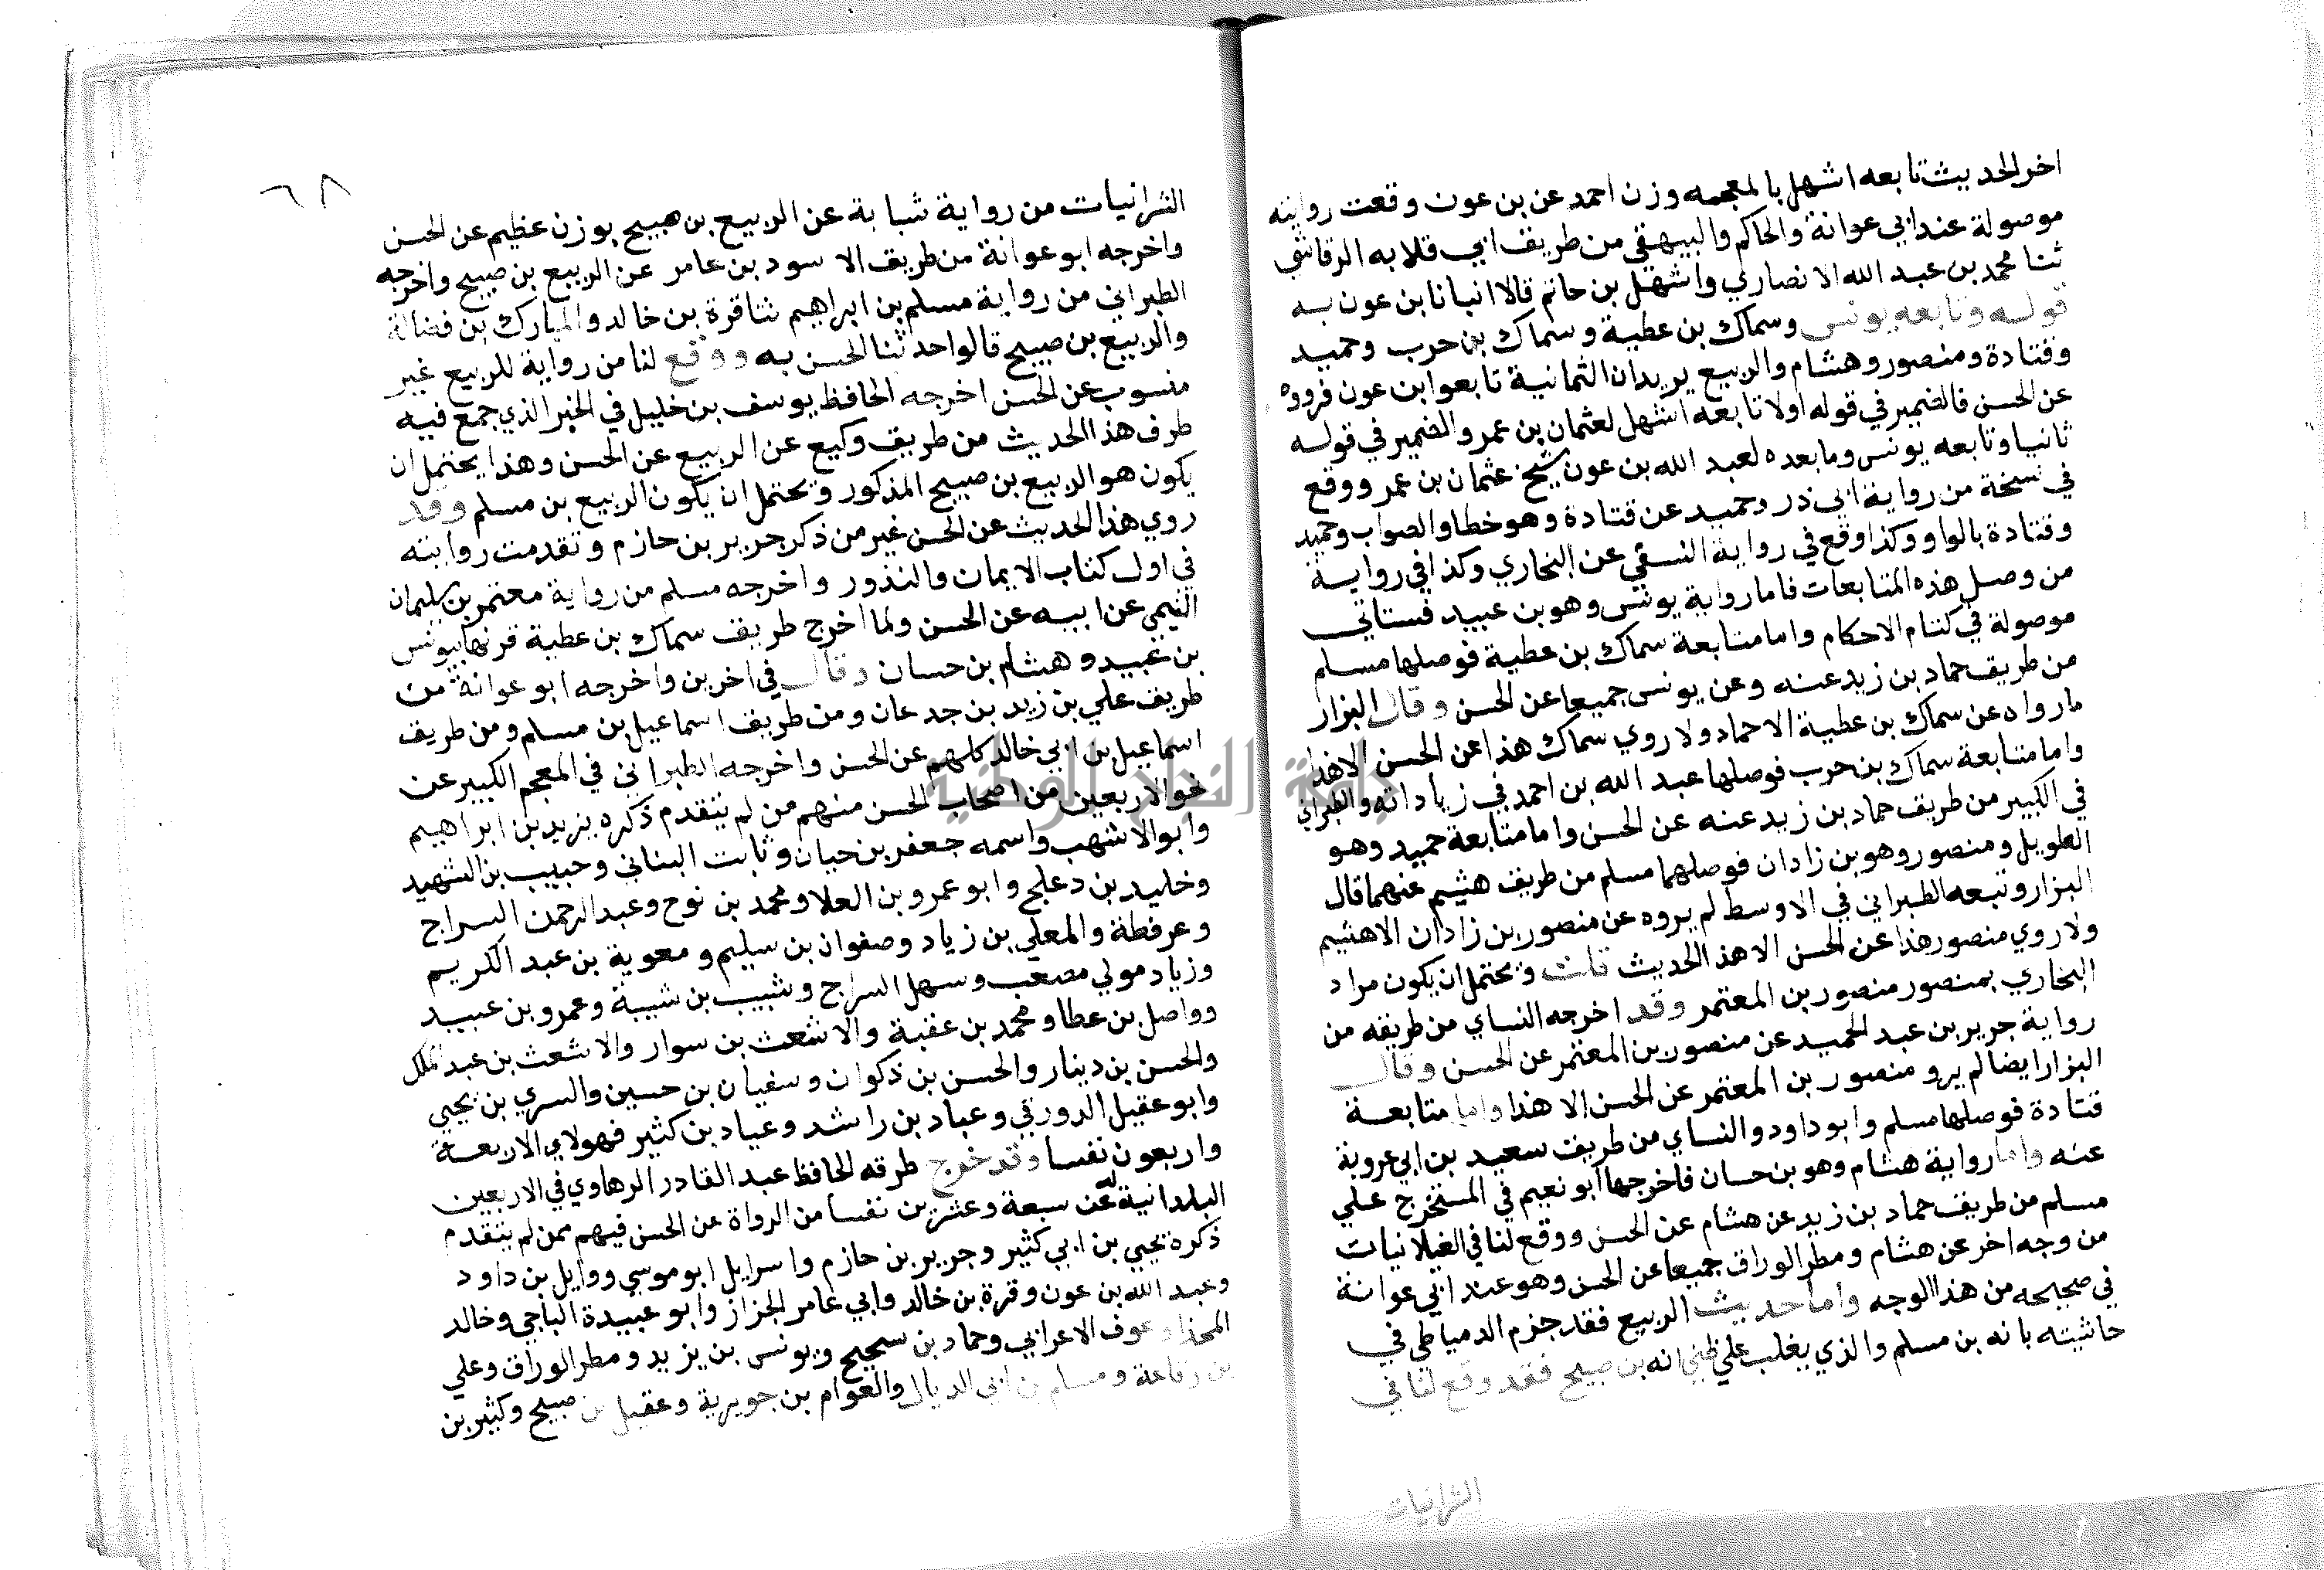 اخر الحديث تابعه اشهل بالمعجمه وزن احمد عن بن عون وقعت روايته
موصولة عند ابي عوانة والحاكم والبيهقي من طريق ابي قلابه الرقاشي
ثنا محمد بن عبد الله الانصاري واشهل بن حاتم قالا انبانا بن عون به
قوله وتابعه يونس وسماك بن عطية وسماك بن حرب وحميد
وقتادة ومنصور وهشام والربيع يريد ان الثمانية تابعوا ابن عون فرووه
عن الحسن فالضمير في قوله اولا تابعه اشهل لعثمان بن عمر والضمير في قوله
ثانيا وتابعه يونس وما بعده لعبد الله بن عون شيخ عثمان بن عمر ووقع
في نسخة من رواية ابي ذر وحميد عن قتادة وهو خطا والصواب وحميد
وقتادة بالواو وكذا وقع في رواية النسفي عن البخاري وكذا في رواية
من وصل هذه المتابعات فاما رواية يونس وهو بن عبيد فستاتي
موصولة في كتام الاحكام واما متابعة سماك بن عطية فوصلها مسلم
من طريق حماد بن زيد عنه وعن يونس جميعا عن الحسن وقال البزار
ما رواه عن سماك بن عطية الا حماد ولا روي سماك هذا عن الحسن الا هذا
واما متابعة سماك بن حرب فوصلها عبد الله بن احمد في زياداته والطبراني
في الكبير من طريق حماد بن زيد عنه عن الحسن واما متابعة حميد وهو
الطويل ومنصور وهو بن زادان فوصلهما مسلم من طريق هشيم عنهما قال
البزار وتبعه الطبراني في الاوسط لم يروه عن منصور بن زادان الا هشيم
ولا روي منصور هذا عن الحسن الا هذ الحديث قلت ويحتمل ان يكون مراد
البخاري بمنصور منصور بن المعتمر وقد اخرجه النساي من طريقه من
رواية جرير بن عبد الحميد عن منصور بن المعتمر عن الحسن وقال
البزار ايضا لم يرو منصور بن المعتمر عن الحسن الا هذا واما متابعة
قتادة فوصلها مسلم وابو داود والنساي من طريق سعيد بن ابي عروبة
عنه واما رواية هشام وهو بن حسان فاخرجها ابو نعيم في المستخرج علي
مسلم من طريق حماد بن زيد عن هشام عن الحسن ووقع لنا في الغيلانيات
من وجه اخر عن هشام ومطر الوراق جميعا عن الحسن وهو عند ابي عوانة
في صحيحه من هذا الوجه واما حديث الربيع فقد جزم الدمياطي في
حاشيته بانه بن مسلم والذي يغلب علي ظني انه بن صبيح فقد وقع لنا في
الشرانيات
٦٨
الشرانيات من رواية شبابة عن الربيع بن صبيح بوزن عظيم عن الحسن
واخرجه ابو عوانة من طريق الاسود بن عامر عن الربيع بن صبيح واخرجه
الطبراني من رواية مسلم بن ابراهيم ثنا قرة بن خالد والمبارك بن فضالة
والربيع بن صبيح قالوا حدثنا الحسن به ووقع لنا من رواية للربيع غير
منسوب عن الحسن اخرجه الحافظ يوسف بن خليل في الخبر الذي جمع فيه
طرف هذا الحديث من طريق وكيع عن الربيع عن الحسن وهذا يحتمل ان
يكون هو الربيع بن صبيح المذكور ويحتمل ان يكون الربيع بن مسلم وقد
روي هذا الحديث عن الحسن غير من ذكر جرير بن حازم وتقدمت روايته
في اول كتاب الايمان والنذور واخرجه مسلم من رواية معتمر بن سليمان
التيمي عن ابيه عن الحسن ولما اخرج طريق سماك بن عطية قرنها بيونس
بن عبيد وهشام بن حسان وقال في اخرين واخرجه ابو عوانة من
طريق علي بن زيد بن جدعان ومن طريق اسماعيل بن مسلم ومن طريق
اسماعيل بن ابي خالد كلهم عن الحسن واخرجه الطبراني في المعجم الكبير عن
نحو الاربعين من اصحاب الحسن منهم من لم يتقدم ذكره يزيد بن ابراهيم
وابو الاشهب واسمه جعفر بن حيان وثابت البناني وحبيب بن الشهيد
وخليد بن دعلج وابو عمرو بن العلا ومحمد بن نوح وعبد الرحمن السراج
وعرفطة والمعلي بن زياد وصفوان بن سليم ومعوية بن عبد الكريم
وزياد مولي مصعب وسهل السراج وشبيب بن شيبة وعمرو بن عبيد
وواصل بن عطا ومحمد بن عقبة والاشعث بن سوار والاشعث بن عبد الملك
والحسن بن دينار والحسن بن ذكوان وسفيان بن حسين والسري بن يحيي
وابو عقيل الدورقي وعباد بن راشد وعباد بن كثير فهولاي الاربعة
واربعون نفسا وقد خرج طرقه الحافظ عبد القادر الرهاوي في الاربعين
البلدانية له عن سبعة وعشرين نفسا من الرواة عن الحسن فيهم ممن لم يتقدم
ذكره يحيي بن ابي كثير وجرير بن حازم واسرايل ابو موسي ووايل بن داود
وعبد الله بن عون وقرة بن خالد وابي عامر الجزاز وابو عبيدة الباجي وخالد
المحذا وعوف الاعرابي وحماد بن سجيح ويونس بن يزيد ومطر الوراق وعلي
بن رفاعة ومسلم بن ابي الديال والعوام بن جويرية وعقيل بن صبيح وكثير بن
جامعة النجاح الوطنية